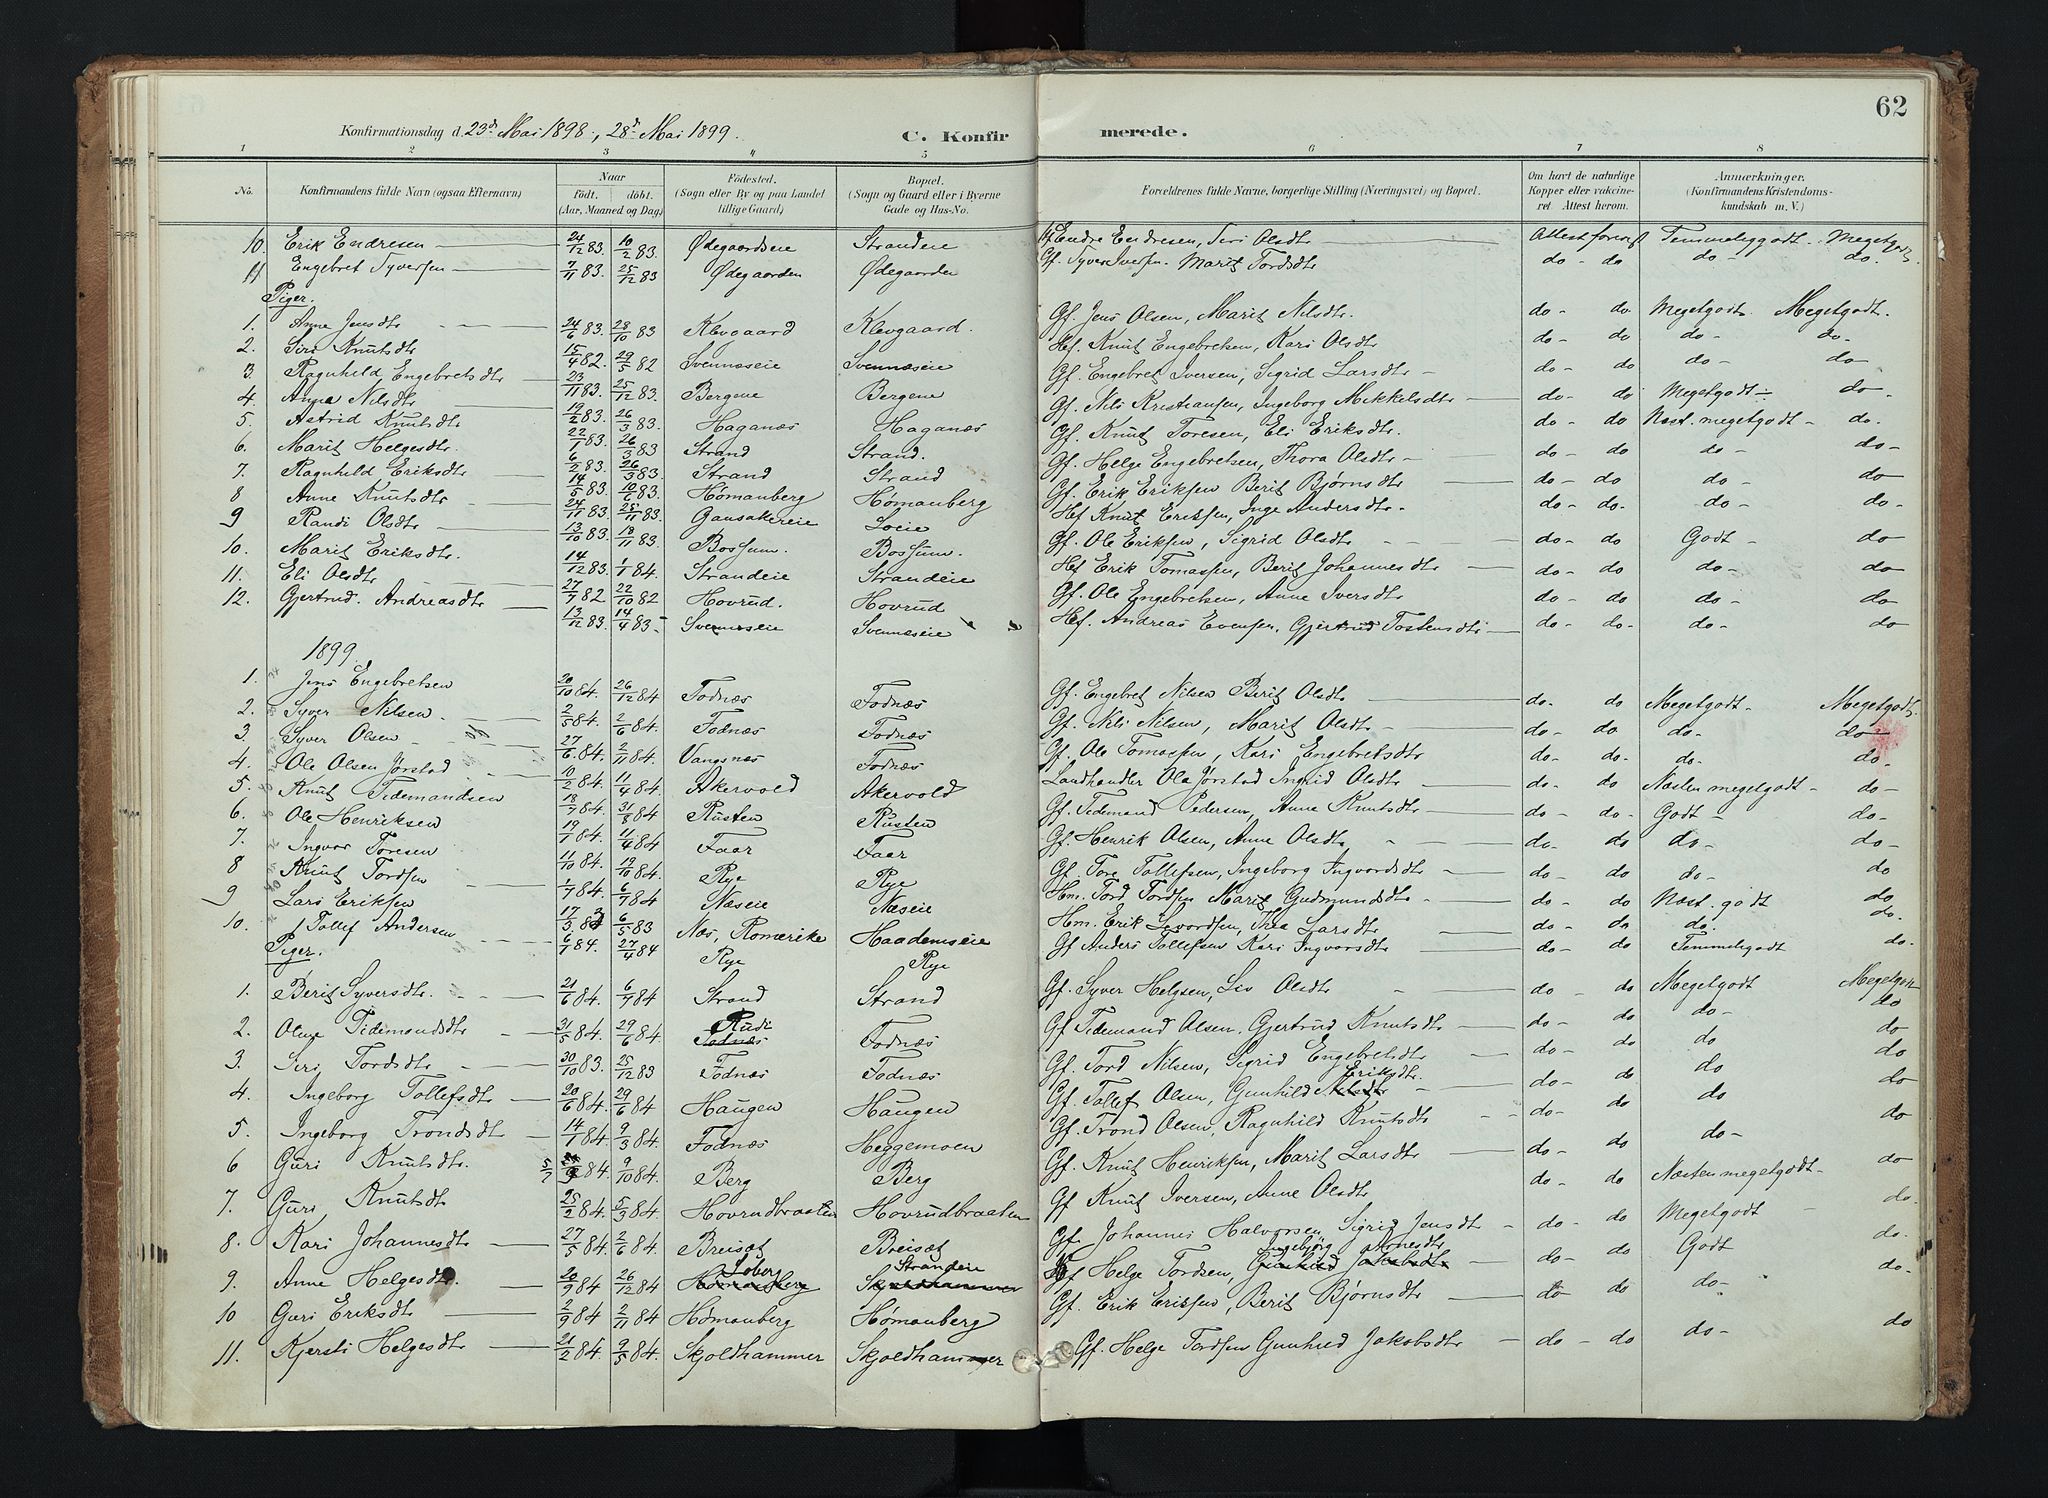 62
Konfirmationsdag d. 23d Mai 1898, 28d Mai 1899. C. Konfirmerede.
1 2 3 4 5 6 7 8
No. Konfirmandens fulde Navn (ogsaa Efternavn) Naar födt. döbt. (Aar, Maaned og Dag.) Födested. (Sogn eller By og paa Landet tillige Gaard.) Bopæl. (Sogn og Gaard eller i Byerne Gade og Hus-No. Forældrenes fulde Navne, borgerlige Stilling (Næringsvei) og Bopæl. Om havt de naturlige Kopper eller vakcineret. Attest herom. Anmærkninger. (Konfirmandens Kristendomskundskab m. V.)
10. Erik Endresen 24/12 83. 10/2 83. Ødegaardseie Strandeie Endre Endresen, Siri Olsdtr Attest Temmeliggodt. Megetgodt
11 Engebret Syversen 7/11 83. 25/12 83 Ødegaarden Ødegaarden Gf. Syver Iversen. Marit Tordsdtr do - do do - do.
Piger.
1. Anne Jensdtr 24/6 83. 28/10 83 Klevgaard Klevgaard. Gf. Jens Olsen, Marit Nilsdtr. do - do Megetgodt. Megetgodt.
2. Siri Knutsdtr 15/4 82. 29/5 82 Svennæseie Svennæseie Hf. Knut Engebretsen, Kari Olsdtr do - do do - do -
3. Ragnhild Engebretsdtr 23/11 83. 25/12 83. Bergene Bergene Gf. Engebret Iversen, Sigrid Larsdtr - do - do do - do
4. Anne Nilsdtr 19/2 83. 26/3 83. Haganæs Haganæs Gf. Nils Kristiansen, Ingeborg Mikkelsdtr do - do Megetgodt - do -
5. Astrid Knutsdtr 22/1 83. 26/3 83 Strand Strand. Gf. Knut Toresen, Eli Eriksdtr. do - do Næst. megetgodt - do.
6. Marit Helgesdtr 6/2 83. 26/3 83. Strand Strand Gf. Helge Engebretsen, Thora Olsdtr - do - do do - do -
7. Ragnhild Eriksdtr 14/5 83. 10/6 83. Hømanberg Hømanberg Gf. Erik Eriksen Berit Bjørnsdtr do - do do - do
8 Anne Knutsdtr 24/11 83. 25/11 83. Gansakereie Loeie Hf Knut Eriksen, Inge Andersdtr. do - do. do - do -
9 Randi Olsdtr 13/10 83. 18/11 83. Bossum. Bossum. Gf. Ole Eriksen, Sigrid Olsdtr do - do Godt - do
10. Marit Eriksdtr. 14/12 83. 1/1 84. Strandeie Strandeie Hf Erik Tomassen, Berit Johannesdtr do - do do - do
11. Eli Olsdtr 27/7 82 22/10 82 Hovrud. Hovrud Gf. Ole Engebretsen, Anne Iversdtr do - do do - do
12. Gjertrud. Andreasdtr 13/12 83. 14/4 83 - Svennæseie Svennæseie Hf. Andreas Evensen, Gjertrud Tostensdtr do - do - do - do
1899
1. Jens Engebretsen 20/10 84. 26/12 84 Fodnæs Fodnæs Gf. Engebret Nilsen Berit Olsdtr do - do Megetgodt - Megetgodt.
2. Syver Nilsen. 2/5 84. 2/6 84. Fodnæs Fodnæs Gf. Nils Nilsen, Marit Olsdtr do - do do - do
3. Syver Olsen 27/6 84. 2/11 84. Vangsnæs Fodnæs Gf. Ole Tomassen, Kari Engebretsdtr do - do - do - do -
4. Ole Olsen Jørstad 10/2 84. 11/4 84. Akervold Akervold Landhandler Ole Jørstad Ingrid Olsdtr do - do Næsten megetgodt - do -
5. Knut Tidemandsen 18/7 84. 31/8 84 Rusten Rusten Gf. Tidemand Pedersen, Anne Knutsdtr do - do - Godt - do -
6. Ole Henriksen 19/1 84. 11/4 84 Faar Faar Gf. Henrik Olsen, Anne Olsdtr do - do do - do -
7. Ingvar Toresen 11/10 84. 19/10 84. Rye Rye Gf. Tore Tollefsen, Ingeborg Ingvordsdtr do - do do - do
8 Knut Tordsen 1/7 84. 6/7 84 Næseie Næseie Hm. Tord Tordsen Marit Gudmundsdtr do - do Næst. godt do
9 Lars Eriksen 17/3 83 6/5 83 Næs, Romerike Haademseie Hm. Erik Sivordsen, Thea Larsdtr do - do do. do.
10. Tollef Andersen 6/1 84. 27/4 84 Rye Rye Gf Anders Tollefsen Kari Ingvorsdtr do - do Temmelegodt do.
Piger.
1. Berit Syversdtr. 21/6 84. 6/7 84 Strand Strand Gf. Syver Helgsen, Liv Olsdtr do - do Megetgodt Megetgodt
2. Oline Tidemandsdtr 31/5 84. 29/6 84. Rudi Fodnæs Fodnæs Gf Tidemand Olsen, Gjertrud Knutsdtr do - do do - do
3. Siri Tordsdtr 30/10 83. 25/12 83 Fodnæs Fodnæs Gf. Tord Nilsen, Sigrid Engebretsdtr do - do do do
4. Ingeborg Tollefsdtr 20/6 84. 29/6 84 Haugen Haugen Gf. Tollef Olsen, Gunhild Nilsdtr Eriksdtr. do - do do do
5. Ingeborg Trondsdtr 14/1 84 9/3 84. Fodnæs Heggemoen Gf. Trond Olsen, Ragnhild Knutsdtr do - do do do
6 Guri Knutsdtr. 5/7 84. 9/10 84. Berg Berg Gf. Knut Henriksen, Marit Larsdtr do - do do - do
7. Guri Knutsdtr 25/2 84. 5/3 84. Hovrudbraaten Hovrudbraaten Gf Knut Iversen, Anne Olsdtr do - do Næsten megetgodt - do
8. Kari Johannesdtr 27/5 84. 2/6 84. Breisæt Breisæt Gf. Johannes Halvorsen Sigrid Jensdtr - do - do Megetgodt - do.
9. Anne Helgesdtr. 20/9 84 26/12 84 Loberg Hømanberg Strandeie Skjoldhammer Hf Helge Tordsen, Gunhild Jakobsdtr Ingebjörg Arnesdtr do - do Godt do.
10 Guri Eriksdtr 2/9 84 2/11 84 Hømanberg Hømanberg Gf. Erik Eriksen, Berit Bjørnsdtr do do do - do -
11. Kjersti Helgesdtr 21/2 84. 9/5 84. Skjoldhammer Skjoldhammer Gf. Helge Tordsen Gunhild Jakobsdtr do - do do - do